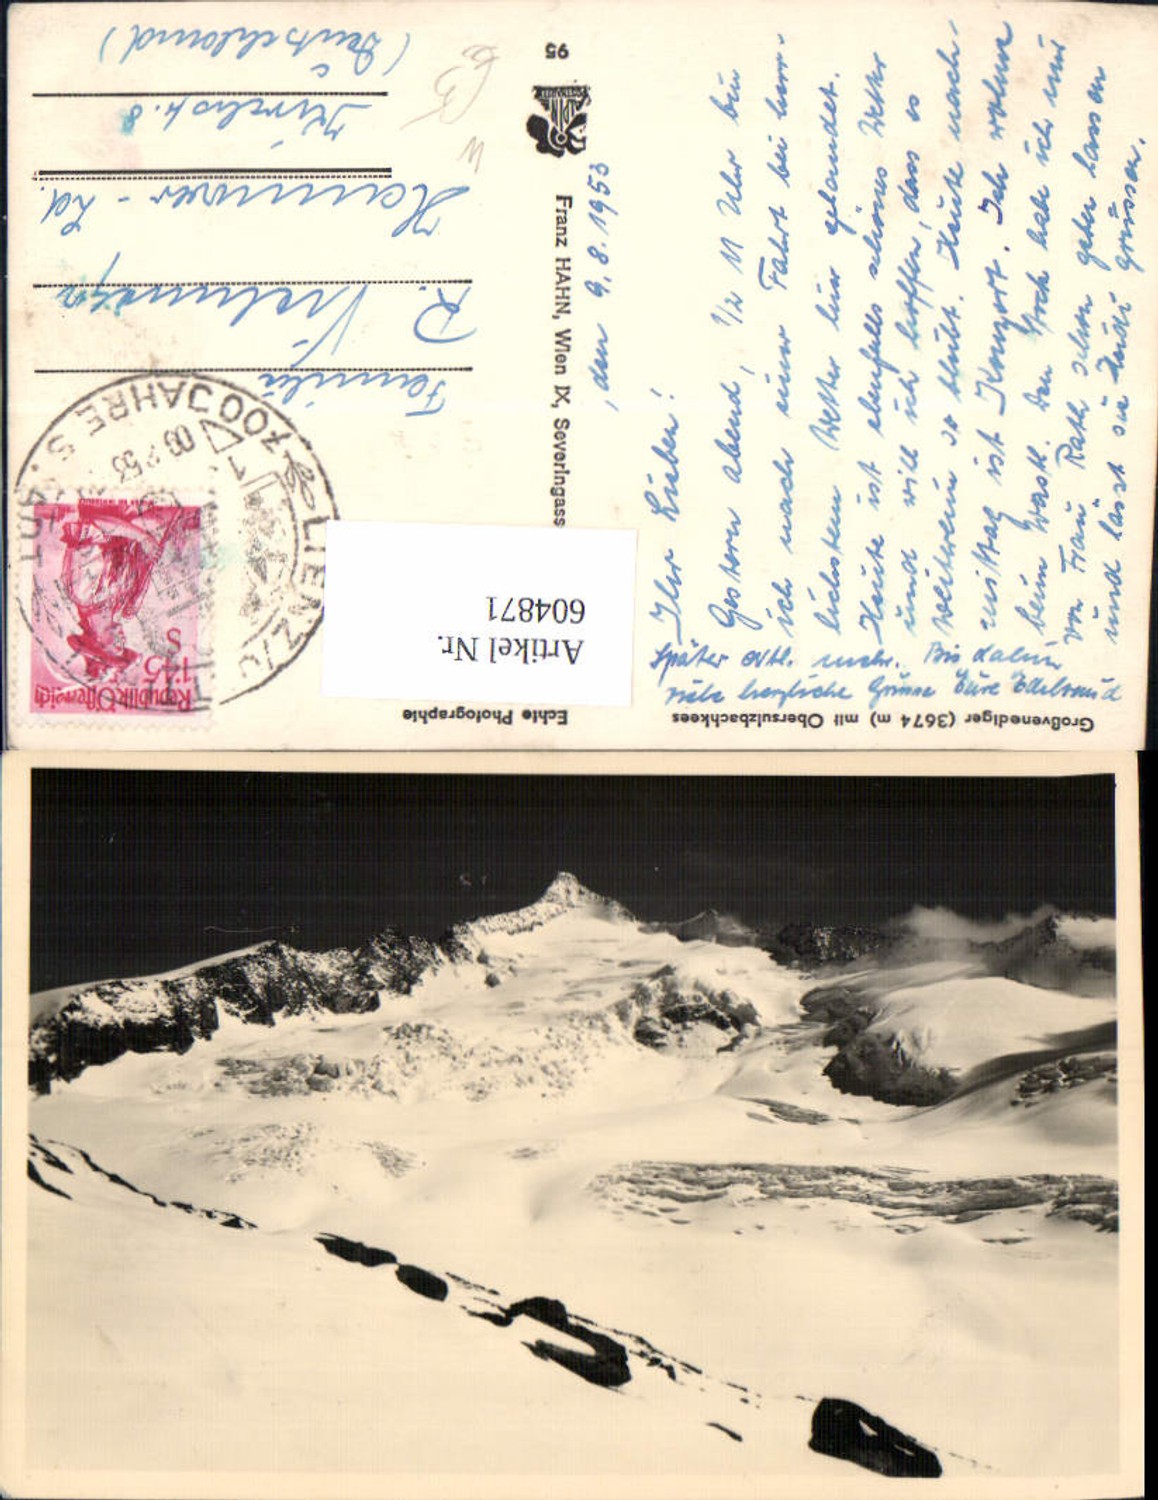 Großvenediger (3674 m) mit Obersulzbachkees
Echte Photographie
Franz HAHN, Wien IX, Severingass
95
Artikel Nr.
604871
Republik Österreich
1·45
S
700 JAHRE S
LIENZ
den 9.8.1953
Ihr Lieben!
Gestern abend, 1/2 11 Uhr bin
ich nach einer Fahrt bei herr-
lichstem Wetter hier gelandet.
Heute ist ebenfalls schönes Wetter
und will ich hoffen, dass es
weiterhin so bleibt. Heute nach-
mittag ist Konzert. Ich wohne
beim Wastl. Den Koch habe ich nur
von Frau Rath schon gehen lassen
und lasst sie Euch grüssen.
Später evtl. mehr. Bis dahin
viele herzliche Grüsse Eure Edeltraud
Familie
R.
Hannover - Ld.
8
(Deutschland)